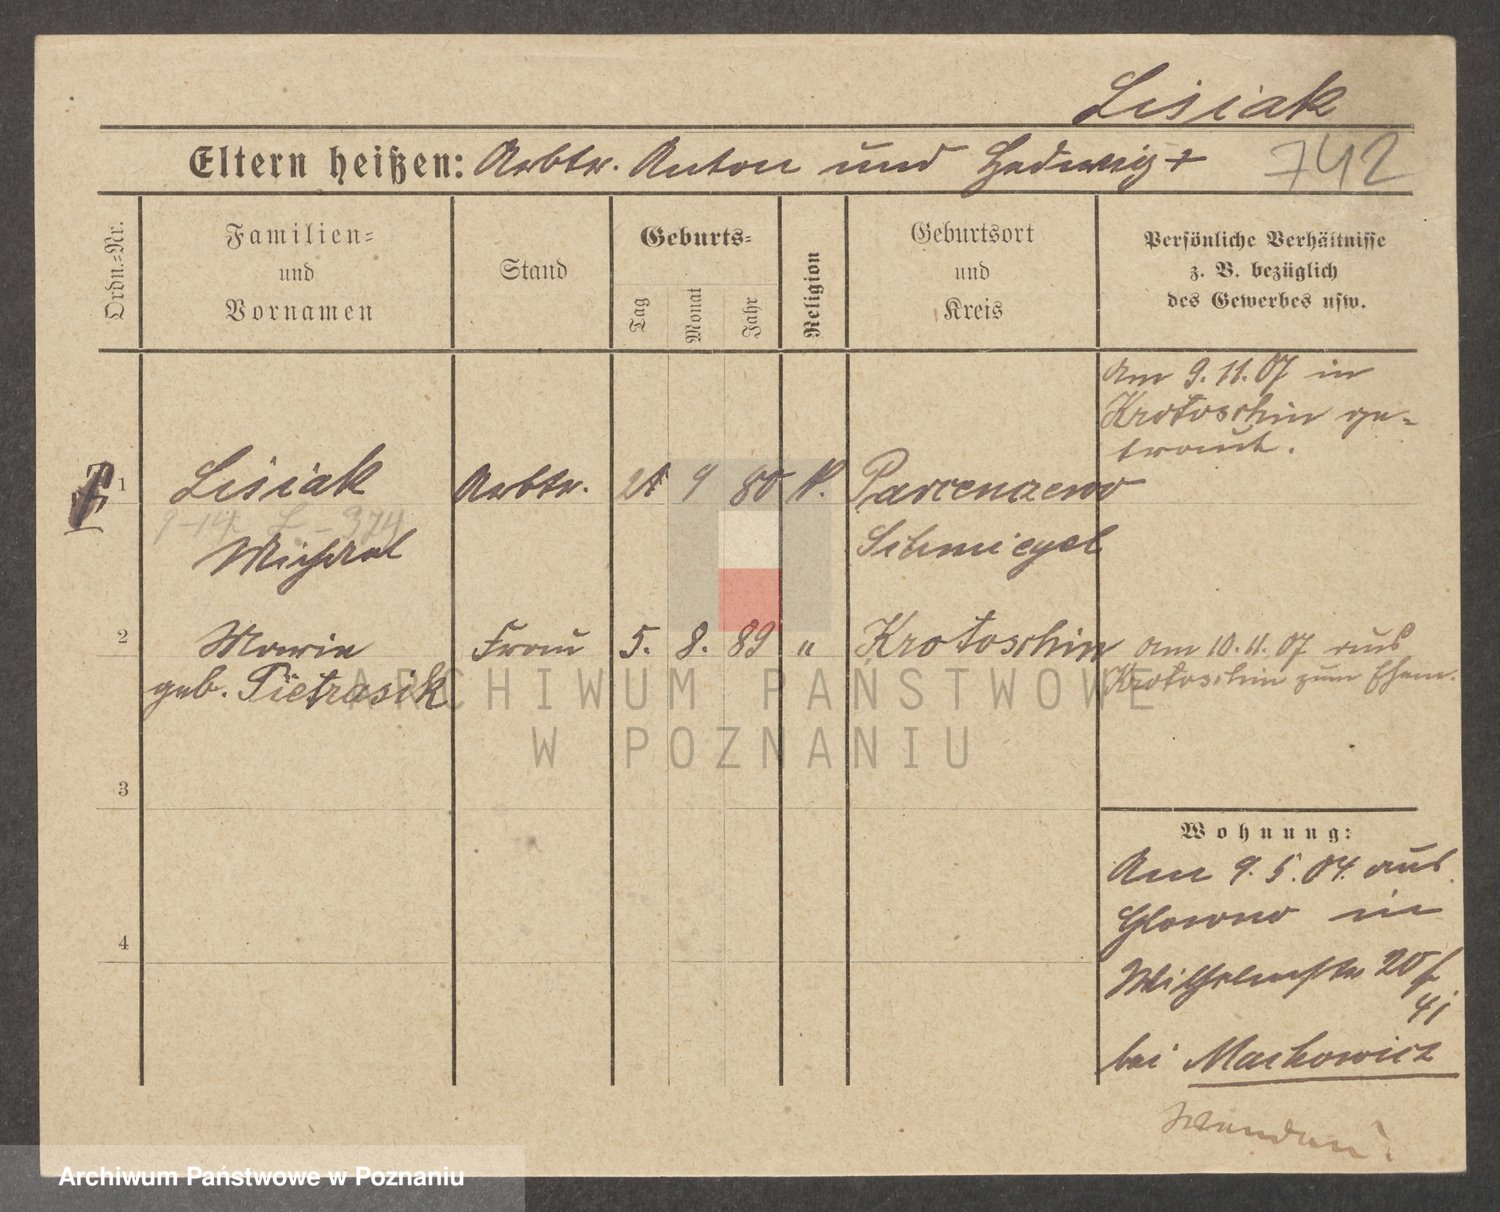 Lisiak
Eltern heißen: Arbtr. Anton und Hedwig +
742
Ordn.-Nr.
Familien-
und
Vornamen
Stand
Geburts-
Tag
Monat
Jahr
Religion
Geburtsort
und
Kreis
Persönliche Verhältnisse
z. B. bezüglich
des Gewerbes usw.
am 9.11.07 in
Krotoschin ge-
traut.
1 Lisiak Arbtr. 9 80 K.
9-14 - 374
Michael Schmiegel
2 Marie Frau 5. 8. 89 " Krotoschin am 10.11.07 aus
geb. Pietrasik Krotoschin zum Ehem.
3
Wohnung:
Am 9.5.04. aus
Glowno in
4
Wilhelmstr 20
bei Markowicz
Wenden!
ARCHIWUM PAŃSTWOWE
W POZNANIU
Archiwum Państwowe w Poznaniu